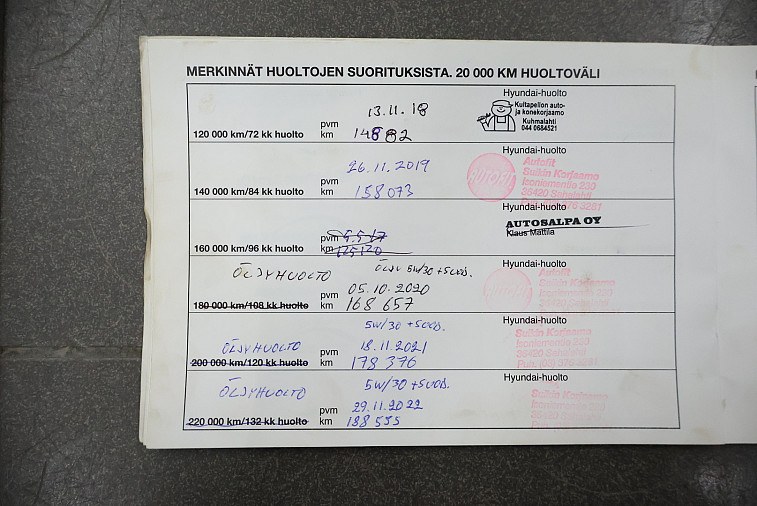 MERKINNÄT HUOLTOJEN SUORITUKSISTA. 20 000 KM HUOLTOVÄLI
Hyundai-huolto
13.11.18
Kultapellon auto-
ja konekorjaamo
Kuhmalahti
044 0684521
pvm
120 000 km/72 kk huolto km 148882
Hyundai-huolto
26.11.2019
Autofit
Sulkin Korjaamo
Isoniementie 230
36420 Sahalahti
pvm
140 000 km/84 kk huolto km 158073
Hyundai-huolto
AUTOSALPA OY
Klaus Mattila
pvm 5.5.17
160 000 km/96 kk huolto km 125120
Hyundai-huolto
ÖLJYHUOLTO ÖLJY 5W/30 + SUOD.
Autofit
Sulkin Korjaamo
pvm 05.10.2020
180 000 km/108 kk huolto km 168 657
Hyundai-huolto
5W/30 + SUOD.
Sulkin Korjaamo
Isoniementie 230
36420 Sahalahti
ÖLJYHUOLTO pvm 18.11.2021
200 000 km/120 kk huolto km 178 376
Hyundai-huolto
ÖLJYHUOLTO 5W/30 + SUOD.
Sulkin Korjaamo
pvm 29.11.2022
220 000 km/132 kk huolto km 188 555